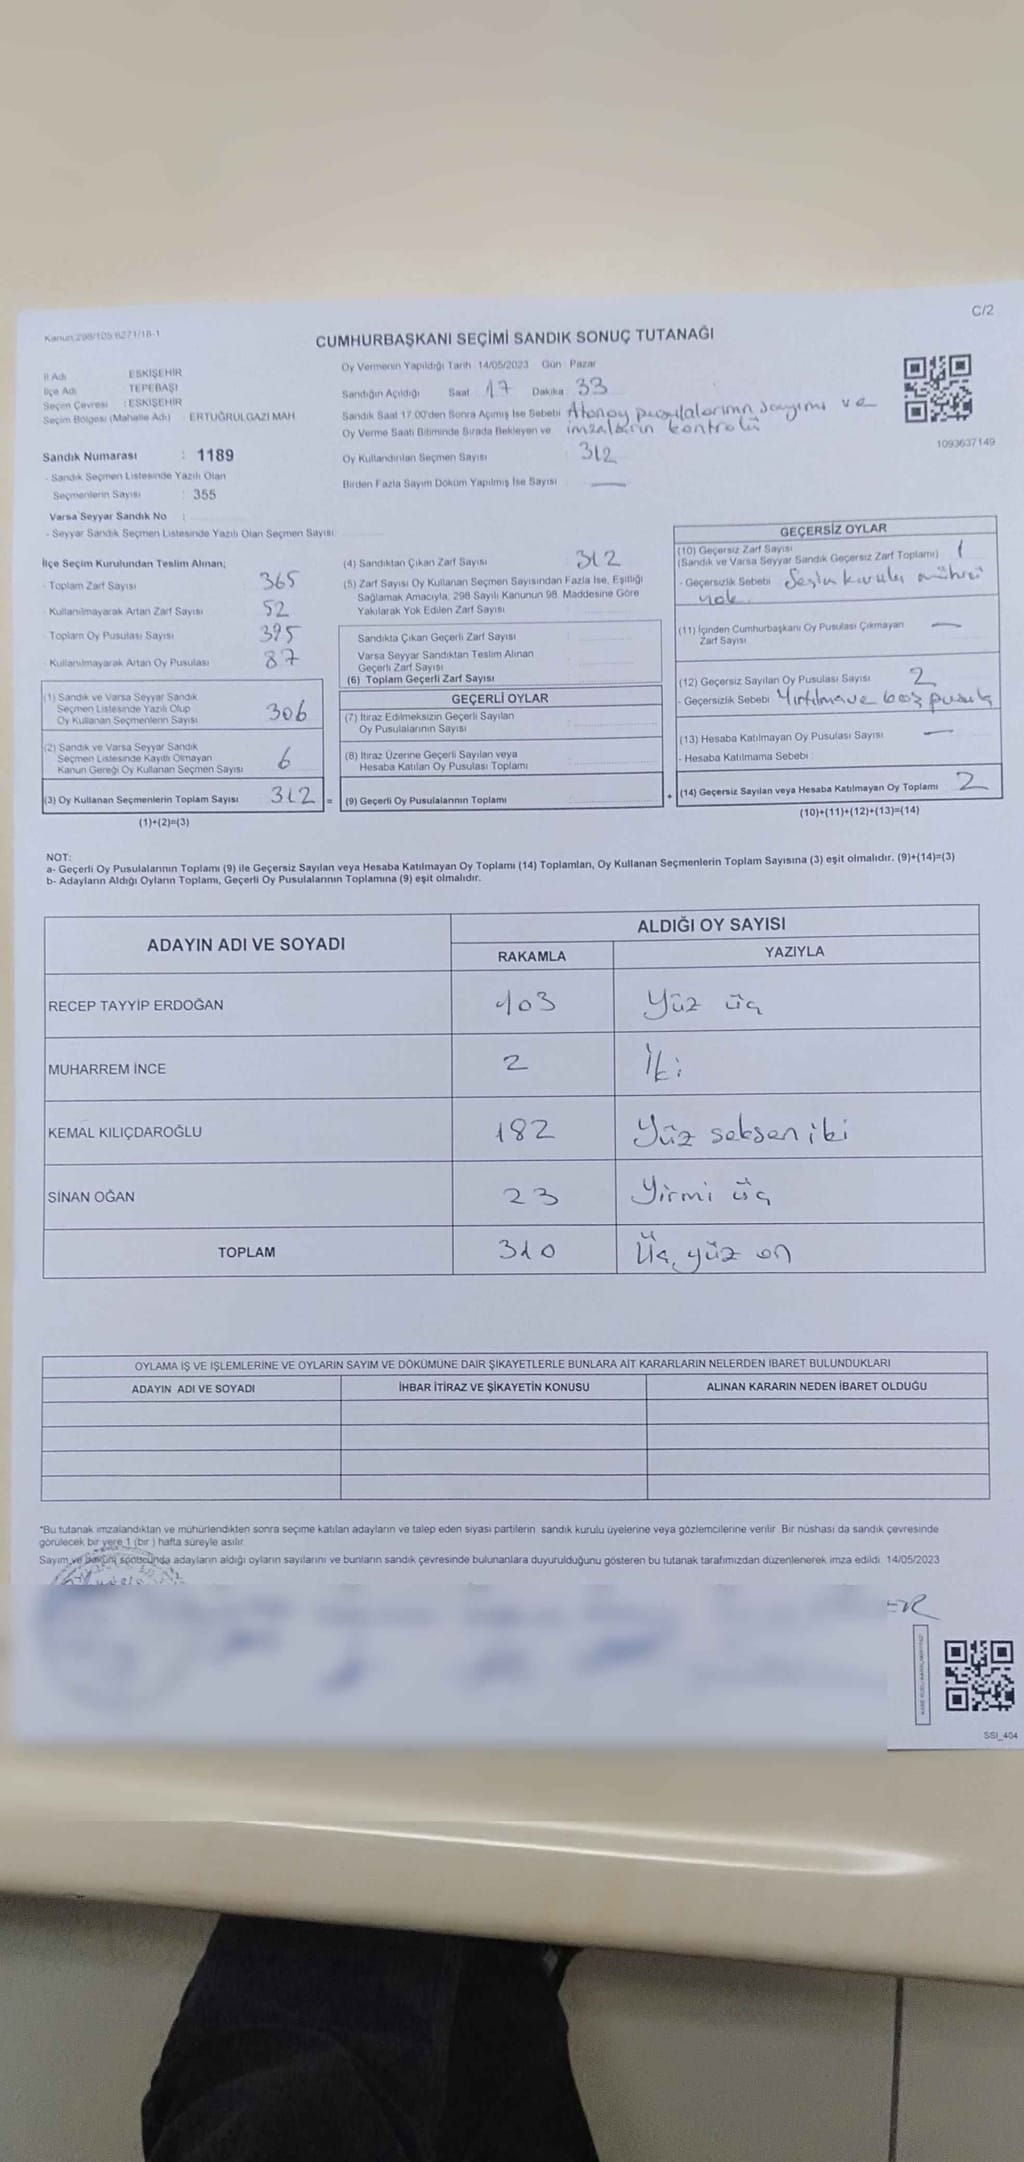 C/2
Kanun:298/105 6271/18-1
CUMHURBAŞKANI SEÇİMİ SANDIK SONUÇ TUTANAĞI
İl Adı : ESKİŞEHİR
İlçe Adı : TEPEBAŞI
Seçim Çevresi : ESKİŞEHİR
Seçim Bölgesi (Mahalle Adı) : ERTUĞRULGAZİ MAH
Sandık Numarası : 1189
- Sandık Seçmen Listesinde Yazılı Olan
Seçmenlerin Sayısı : 355
Varsa Seyyar Sandık No :
- Seyyar Sandık Seçmen Listesinde Yazılı Olan Seçmen Sayısı
Oy Vermenin Yapıldığı Tarih : 14/05/2023 Gün : Pazar
Sandığın Açıldığı Saat 17 Dakika 33
Sandık Saat 17:00'den Sonra Açımış İse Sebebi pusulalarının sayımı ve
Oy Verme Saati Bitiminde Sırada Bekleyen ve imzaların kontrolü
Oy Kullandırılan Seçmen Sayısı 312
Birden Fazla Sayım Döküm Yapılmış İse Sayısı —
1093637149
İlçe Seçim Kurulundan Teslim Alınan;
- Toplam Zarf Sayısı 365
- Kullanılmayarak Artan Zarf Sayısı 52
- Toplam Oy Pusulası Sayısı 395
- Kullanılmayarak Artan Oy Pusulası 87
(1) Sandık ve Varsa Seyyar Sandık
Seçmen Listesinde Yazılı Olup
Oy Kullanan Seçmenlerin Sayısı 306
(2) Sandık ve Varsa Seyyar Sandık
Seçmen Listesinde Kayıtlı Olmayan
Kanun Gereği Oy Kullanan Seçmen Sayısı 6
(3) Oy Kullanan Seçmenlerin Toplam Sayısı 312 =
(1)+(2)=(3)
(4) Sandıktan Çıkan Zarf Sayısı 312
(5) Zarf Sayısı Oy Kullanan Seçmen Sayısından Fazla İse, Eşitliği
Sağlamak Amacıyla, 298 Sayılı Kanunun 98. Maddesine Göre
Yakılarak Yok Edilen Zarf Sayısı
Sandıkta Çıkan Geçerli Zarf Sayısı
Varsa Seyyar Sandıktan Teslim Alınan
Geçerli Zarf Sayısı
(6) Toplam Geçerli Zarf Sayısı
GEÇERLİ OYLAR
(7) İtiraz Edilmeksizin Geçerli Sayılan
Oy Pusulalarının Sayısı
(8) İtiraz Üzerine Geçerli Sayılan veya
Hesaba Katılan Oy Pusulası Toplamı
(9) Geçerli Oy Pusulalarının Toplamı +
GEÇERSİZ OYLAR
(10) Geçersiz Zarf Sayısı
(Sandık ve Varsa Seyyar Sandık Geçersiz Zarf Toplamı) 1
- Geçersizlik Sebebi kurulu mührü
yok
(11) İçinden Cumhurbaşkanı Oy Pusulası Çıkmayan —
Zarf Sayısı
(12) Geçersiz Sayılan Oy Pusulası Sayısı 2
- Geçersizlik Sebebi Yırtılma ve boş pusula
(13) Hesaba Katılmayan Oy Pusulası Sayısı —
- Hesaba Katılmama Sebebi :
(14) Geçersiz Sayılan veya Hesaba Katılmayan Oy Toplamı 2
(10)+(11)+(12)+(13)=(14)
NOT:
a- Geçerli Oy Pusulalarının Toplamı (9) ile Geçersiz Sayılan veya Hesaba Katılmayan Oy Toplamı (14) Toplamları, Oy Kullanan Seçmenlerin Toplam Sayısına (3) eşit olmalıdır. (9)+(14)=(3)
b- Adayların Aldığı Oyların Toplamı, Geçerli Oy Pusulalarının Toplamına (9) eşit olmalıdır.
ADAYIN ADI VE SOYADI ALDIĞI OY SAYISI
RAKAMLA YAZIYLA
RECEP TAYYİP ERDOĞAN 103 Yüz üç
MUHARREM İNCE 2 İki
KEMAL KILIÇDAROĞLU 182 Yüz seksen iki
SİNAN OĞAN 23 Yirmi üç
TOPLAM 310 Üç yüz on
OYLAMA İŞ VE İŞLEMLERİNE VE OYLARIN SAYIM VE DÖKÜMÜNE DAİR ŞİKAYETLERLE BUNLARA AİT KARARLARIN NELERDEN İBARET BULUNDUKLARI
ADAYIN ADI VE SOYADI İHBAR İTİRAZ VE ŞİKAYETİN KONUSU ALINAN KARARIN NEDEN İBARET OLDUĞU
*Bu tutanak imzalandıktan ve mühürlendikten sonra seçime katılan adayların ve talep eden siyasi partilerin sandık kurulu üyelerine veya gözlemcilerine verilir. Bir nüshası da sandık çevresinde
görülecek bir yere 1 (bir) hafta süreyle asılır.
Sayım ve döküm sonucunda adayların aldığı oyların sayılarını ve bunların sandık çevresinde bulunanlara duyurulduğunu gösteren bu tutanak tarafımızdan düzenlenerek imza edildi. 14/05/2023
SSI_404